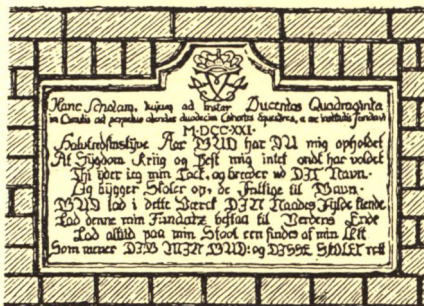 Hanc Scholam, hujus ad instar Ducentas Quadraginta
in Cunulis ad perpetuo alendas duodecim Cohortes Equestres, a me institutis fundavi
M·DCC·XXI·
Halvtredsinstyve Aar GUD har DU mig opholdet
At Sygdom Kriig og Pest mig intet ondt har voldet
Thi yder ieg min Tack, og breeder ud DIT Navn.
Og bÿgger Skoler op, de Fattige til Gavn.
GUD lad i dette Verck DIN Naades Fylde kiende
Lad denne min Fundatz bestaa til Verdens Ende
Lad altid paa min Stool een findes af min Lett
Som mener DIG MIN GUD: og DISSE SKOLER rett